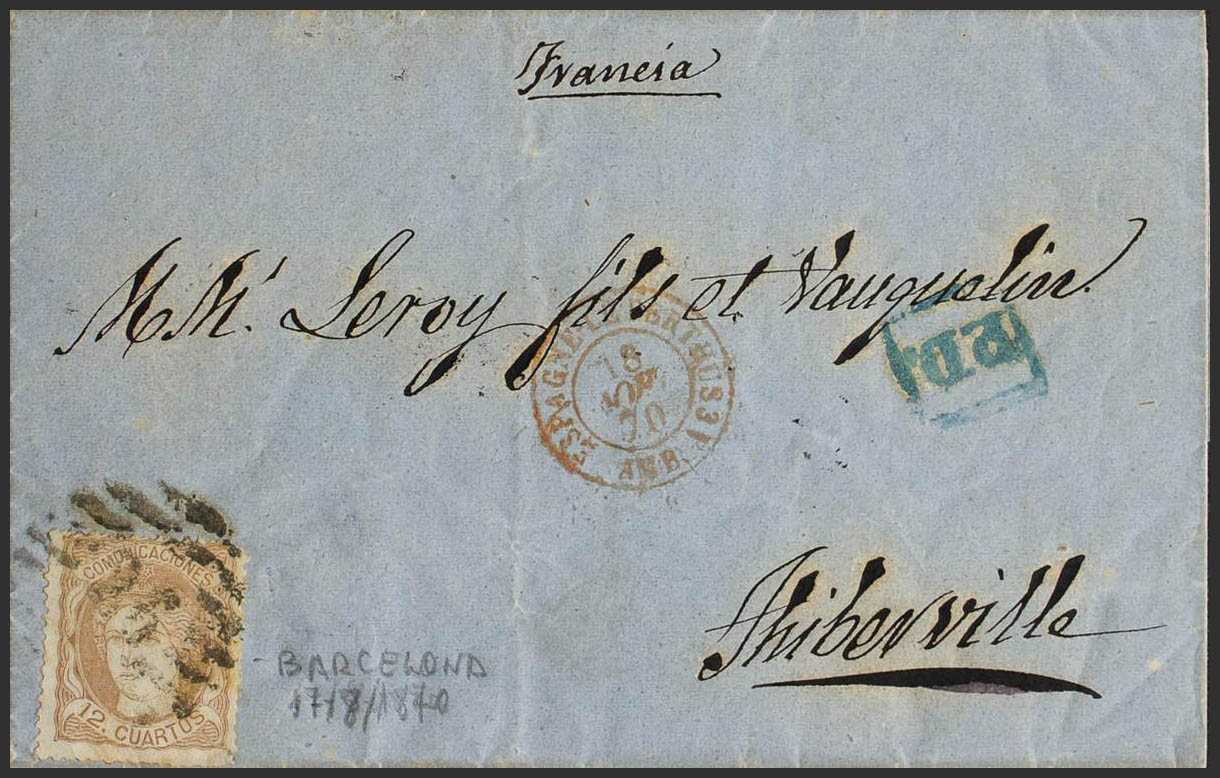 Francia
M.M. Leroy fils et Vauquelin.
P.D.
ESPAGNE
18
70
AMB.
Thiberville
COMUNICACIONES
12. CUARTOS
BARCELONA
17/8/1870